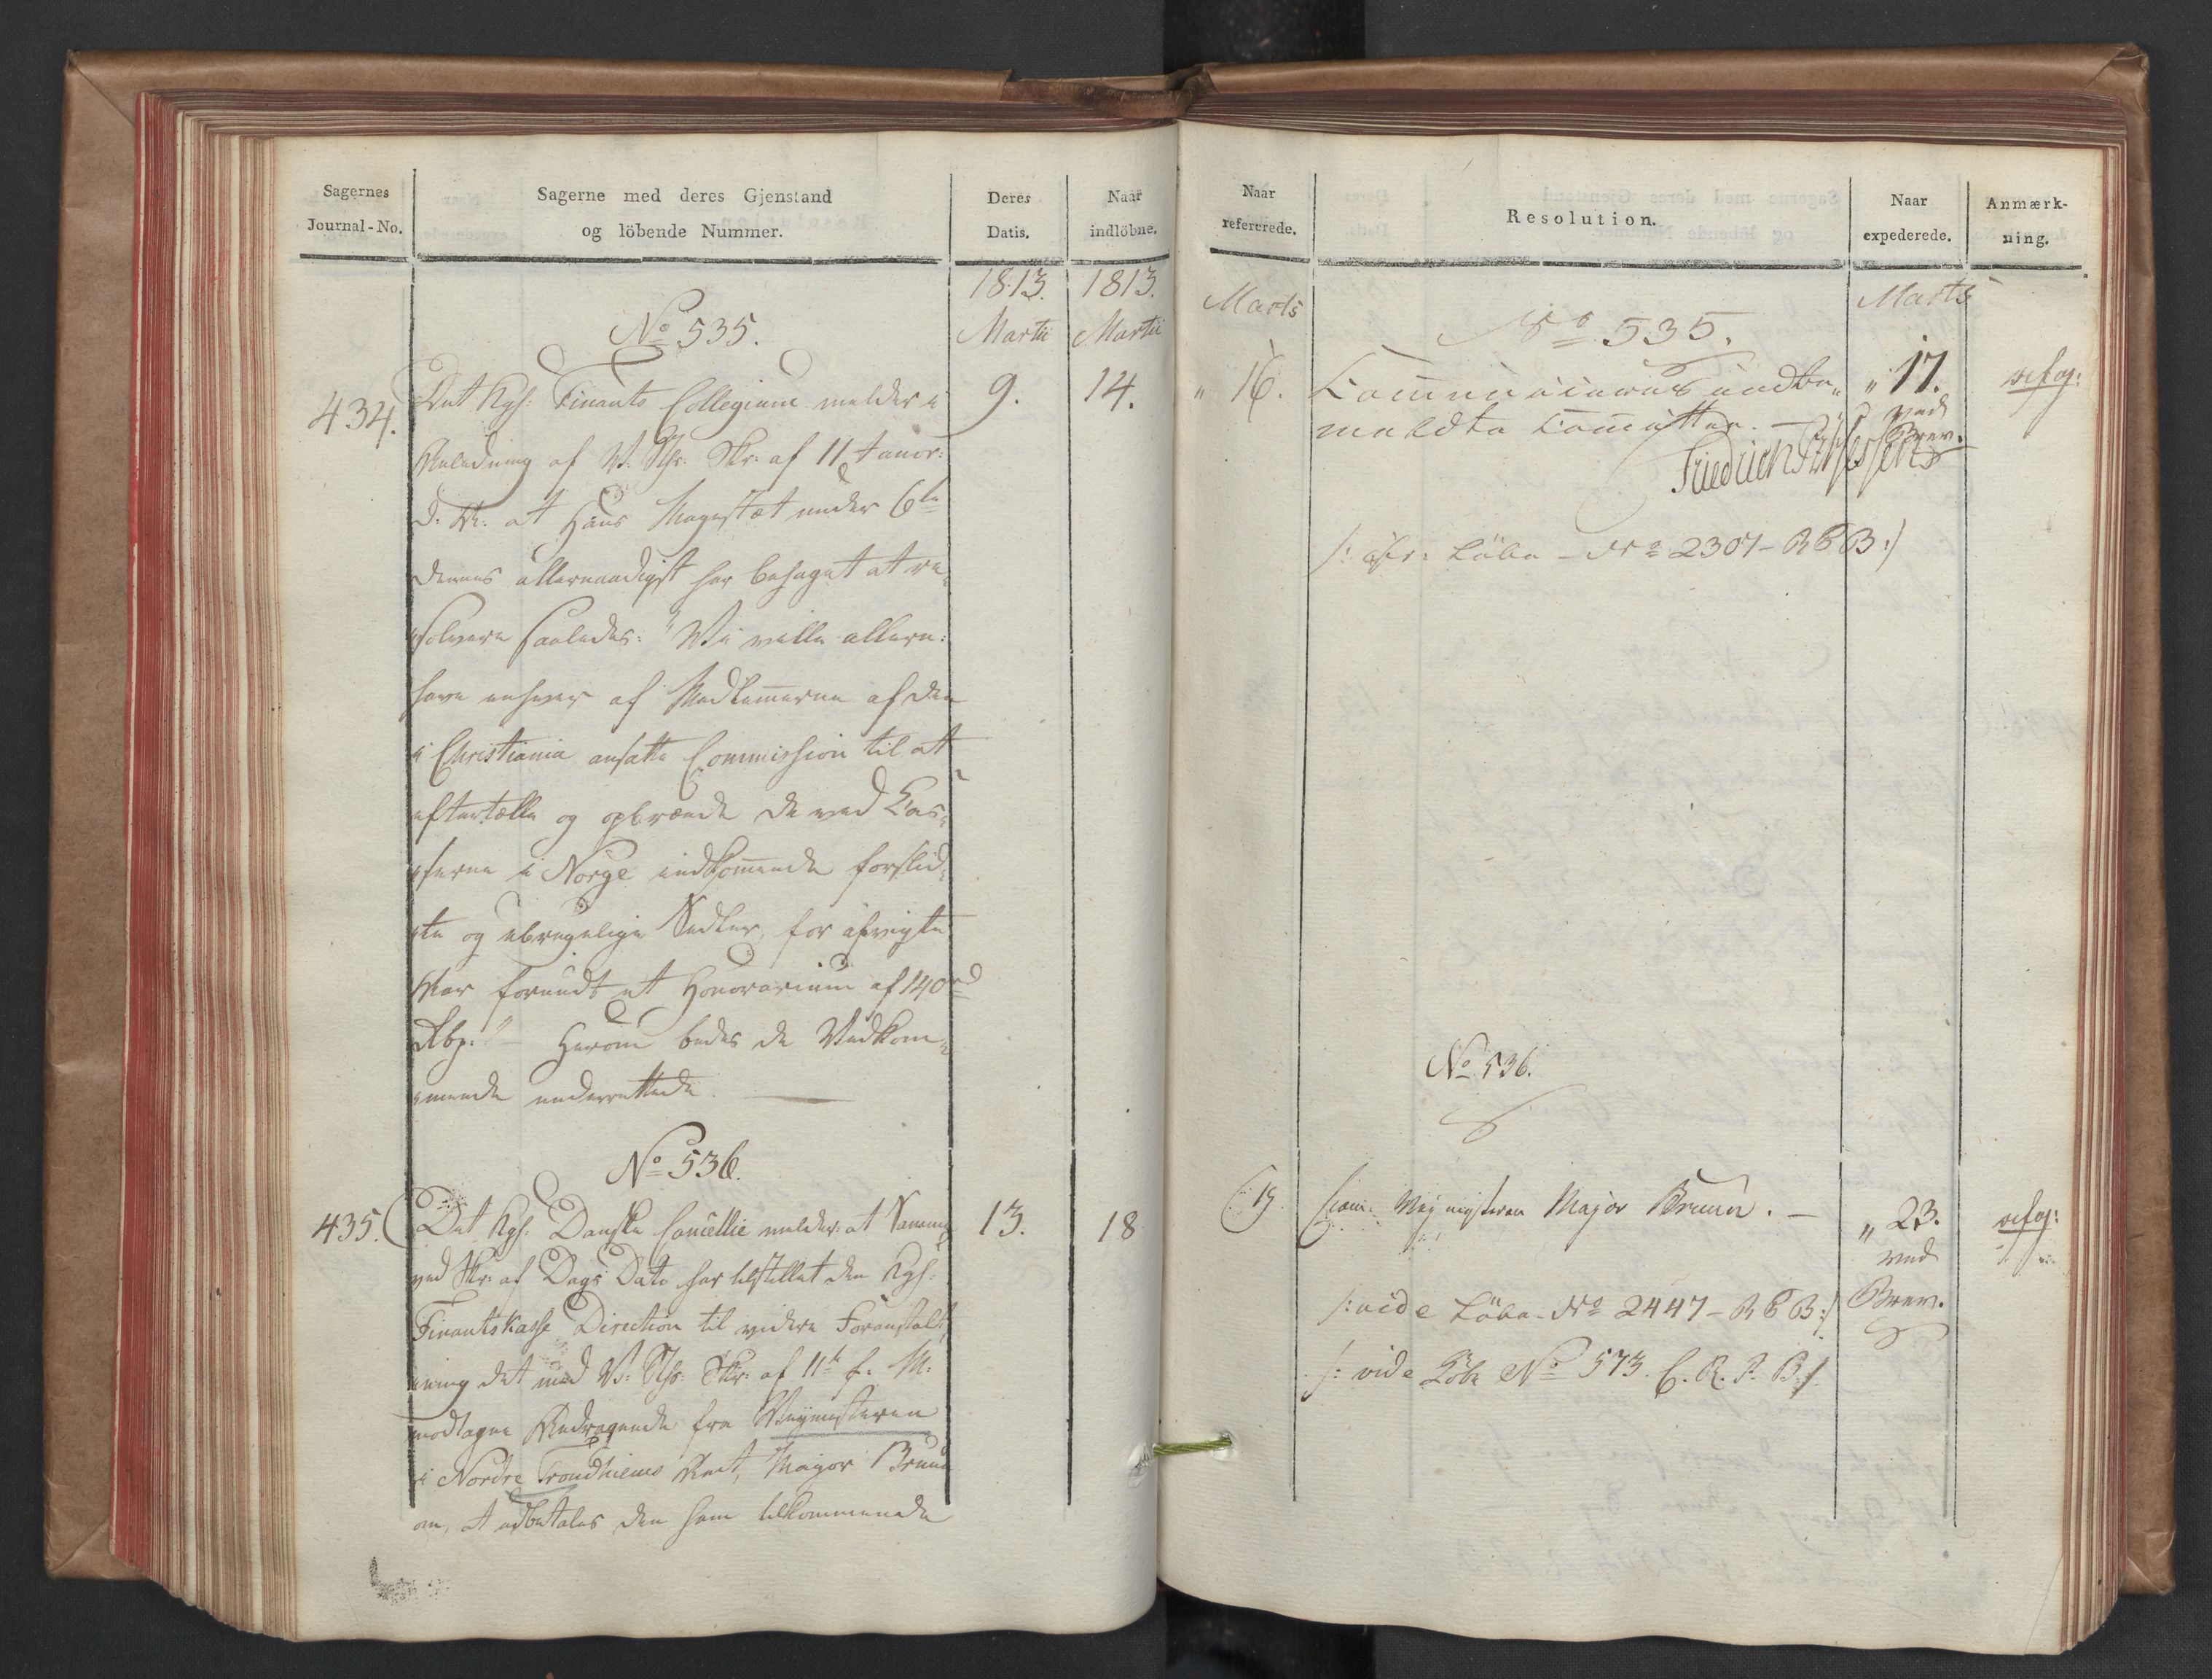 Sagernes
Journal-No.
Sagerne med deres Gjenstand
og löbende Nummer.
Deres
Datis.
Naar
indlöbne.
1813.
1813.
Martii
Martii
No 535.
434.
Det Kgl: Finants Collegium melder i
9.
14.
Anledning af V. Skr: af 11 Januar:
d: A: at Hans Majestæt under 6te
dennes allernaadigst har behaget at re-
solvere saaledes: "Vi ville allern:
have enhver af Medlemmerne af den
i Christiania ansatte Commission til at
eftertælle og opbrænde de ved Cas-
serne i Norge indkommende forslid-
te og ubrugelige Sedler, for afvigte
Aar forundt et Honorarium af 140 rd
Rbp:" — Herom bedes de Vedkom-
mende underrettede. —
No 536.
435.
Det Kgl: Danske Cancellie melder: at Samme
13.
18
ved Skr: af Dags Dato har tilstillet den Kgl:
Finantskasse Direction til videre Foranstalt-
ning det med V: Skr: af 11te f: M:
modtagne Andragende fra Veymesteren
i Nordre Trondhiems Amt, Major Bruun
om, at udbetales den ham tilkommende
Naar
refererede.
Resolution.
Naar
expederede.
Anmærk-
ning.
Marts
Marts
No 535.
" 16.
Communiceres indbe-
meldte Committee. —
" 17.
ved
Brev.
Friedrich
/: cfr: Löbe - No 2307 - R B B :/
No 536.
19
Com: Veymesteren Major Bruun. —
" 23.
ved
Brev.
/: vide Löbe - No 2447 - R B B :/
/: vide Löbe No 573. C. R. P. B :/